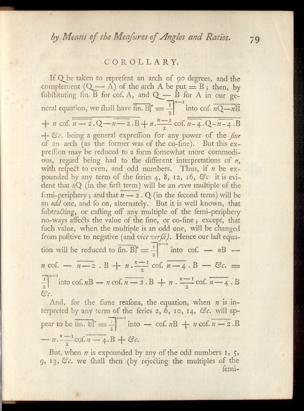 by Means of the Measures of Angles and Ratios. 79
COROLLARY.
If Q be taken to represent an arch of 90 degrees, and the
complement (Q — A) of the arch A be put = B; then, by
substituting sin. B for cos. A, and Q — B for A in our ge-
neral equation, we shall have sin. B|ⁿ = 1/2|ⁿ⁻¹ into cos. nQ—nB
+ n cos. n — 2 . Q — n — 2 . B + n . n—1/2 cos. n — 4 . Q - n - 4 . B
+ &c. being a general expression for any power of the sine
of an arch (as the former was of the co-sine). But this ex-
pression may be reduced to a form somewhat more commodi-
ous, regard being had to the different interpretations of n,
with respect to even, and odd numbers. Thus, if n be ex-
pounded by any term of the series 4, 8, 12, 16, &c it is evi-
dent that nQ (in the first term) will be an even multiple of the
semi-periphery; and that n — 2 . Q (in the second term) will be
an odd one, and so on, alternately. But it is well known, that
subtracting, or casting off any multiple of the semi-periphery
no-ways affects the value of the sine, or co-sine; except, that
such value, when the multiple is an odd one, will be changed
from positive to negative (and vice versâ). Hence our last equa-
tion will be reduced to sin. B|ⁿ = 1/2|ⁿ⁻¹ into cos — nB —
n cos. — n — 2 . B + n . n—1/2 cos. — n — 4 . B — &c. =
1/2|ⁿ⁻¹ into cos. nB — n cos. n — 2 . B + n . n—1/2 cos. n — 4 . B
&c.
And, for the same reasons, the equation, when n is in-
terpreted by any term of the series 2, 6, 10, 14, &c. will ap-
pear to be sin. B|ⁿ = 1/2|ⁿ⁻¹ into — cos. nB + n cos. n — 2 . B
— n . n—1/2 cos. n — 4 . B + &c.
But, when n is expounded by any of the odd numbers 1, 5,
9, 13, &c. we shall then (by rejecting the multiples of the
semi-